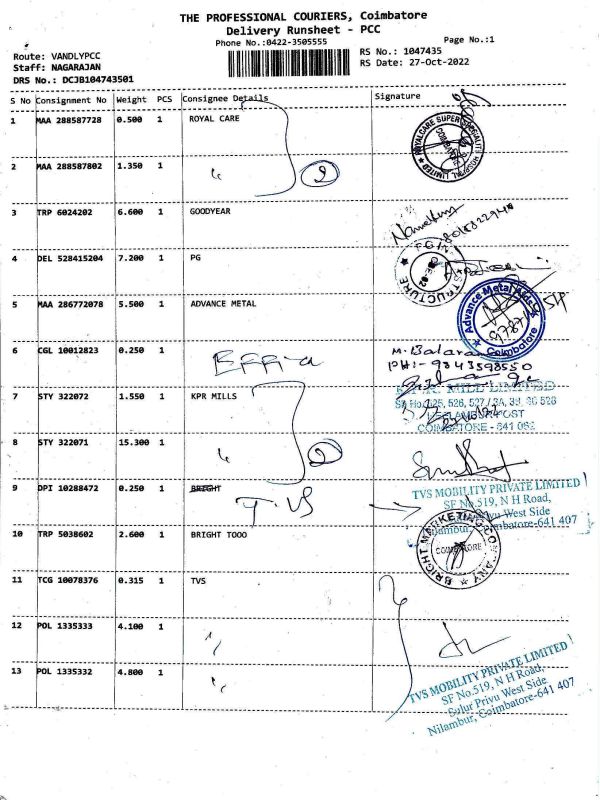 THE PROFESSIONAL COURIERS, Coimbatore
Delivery Runsheet - PCC
Phone No.:0422-3505555
Page No.:1
Route: VANDLYPCC
Staff: NAGARAJAN
DRS No.: DCJB104743501
RS No.: 1047435
RS Date: 27-Oct-2022
S No Consignment No Weight PCS Consignee Details Signature
1 MAA 288587728 0.500 1 ROYAL CARE
2 MAA 288587802 1.350 1 2
3 TRP 6024202 6.600 1 GOODYEAR
4 DEL 528415204 7.200 1 PG
5 MAA 286772078 5.500 1 ADVANCE METAL
Advance Metal Aids
Coimbatore
6 CGL 10012823 0.250 1
PH:- 9843598550
7 STY 322072 1.550 1 KPR MILLS
MILL LIMITED
COIMBATORE - 641 062
8 STY 322071 15.300 1 2
9 DPI 10288472 0.250 1 BRIGHT T.VS
TVS MOBILITY PRIVATE LIMITED
SF No.519, N H Road,
Sulur Privu West Side
Nilambur, Coimbatore-641 407
10 TRP 5038602 2.600 1 BRIGHT TOOO
BRIGHT MARKETING COMPANY
COIMBATORE
11 TCG 10078376 0.315 1 TVS
12 POL 1335333 4.100 1
13 POL 1335332 4.800 1
TVS MOBILITY PRIVATE LIMITED
SF No.519, N H Road,
Sulur Privu West Side
Nilambur, Coimbatore-641 407